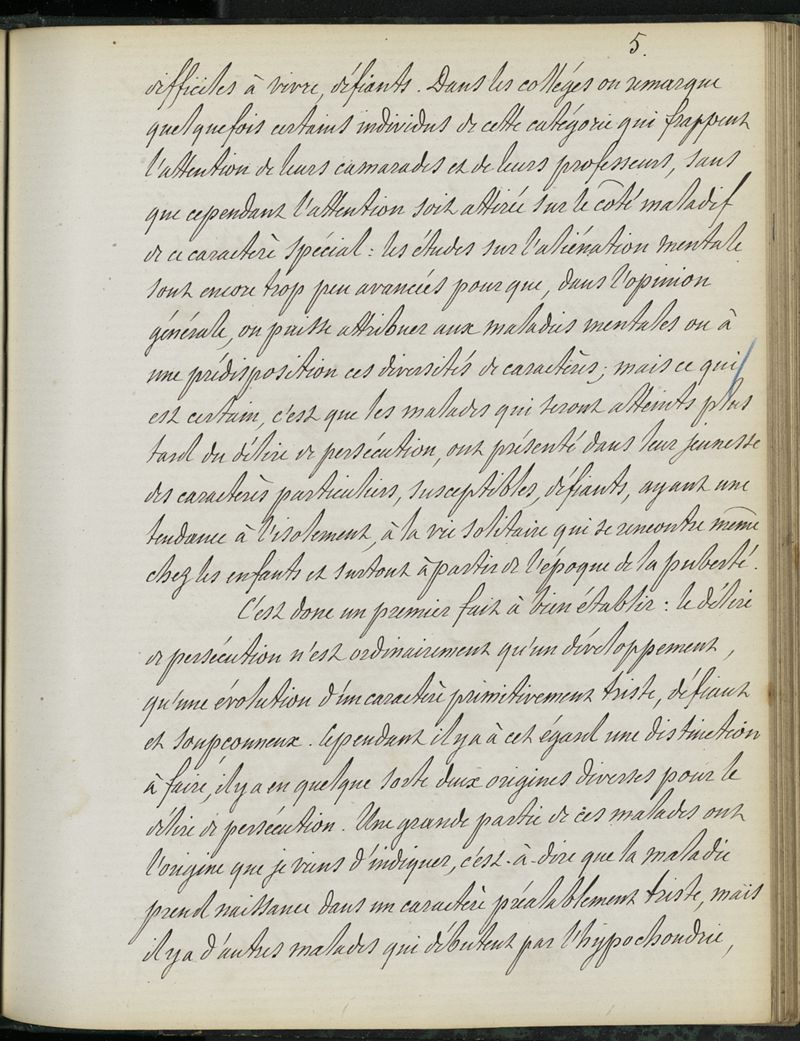 5.
difficiles à vivre, défiants. Dans les colléges on remarque
quelquefois certains individus de cette catégorie qui frappent
l'attention de leurs camarades et de leurs professeurs, sans
que cependant l'attention soit attirée sur le côté maladif
de ce caractère spécial : les études sur l'aliénation mentale
sont encore trop peu avancées pour que, dans l'opinion
générale, on puisse attribuer aux maladies mentales ou à
une prédisposition ces diversités de caractères ; mais ce qui
est certain, c'est que les malades qui seront atteints plus
tard du délire de persécution, ont présenté dans leur jeunesse
des caractères particuliers, susceptibles, défiants, ayant une
tendance à l'isolement, à la vie solitaire qui se rencontre même
chez les enfants et surtout à partir de l'époque de la puberté.
C'est donc un premier fait à bien établir : le délire
de persécution n'est ordinairement qu'un développement,
qu'une évolution d'un caractère primitivement triste, défiant
et soupçonneux. Cependant il y a à cet égard une distinction
à faire, il y a en quelque sorte deux origines diverses pour le
délire de persécution. Une grande partie de ces malades ont
l'origine que je viens d'indiquer, c'est-à-dire que la maladie
prend naissance dans un caractère préalablement triste, mais
il y a d'autres malades qui débutent par l'hypochondrie,